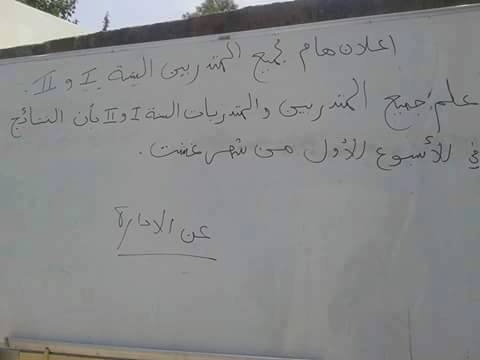 اعلان هام لجميع المتدربين السنة I و II.
علم جميع المتدربين والمتدربات السنة I و II بأن النتائج
في الأسبوع الأول من شهر غشت.
عن الادارة